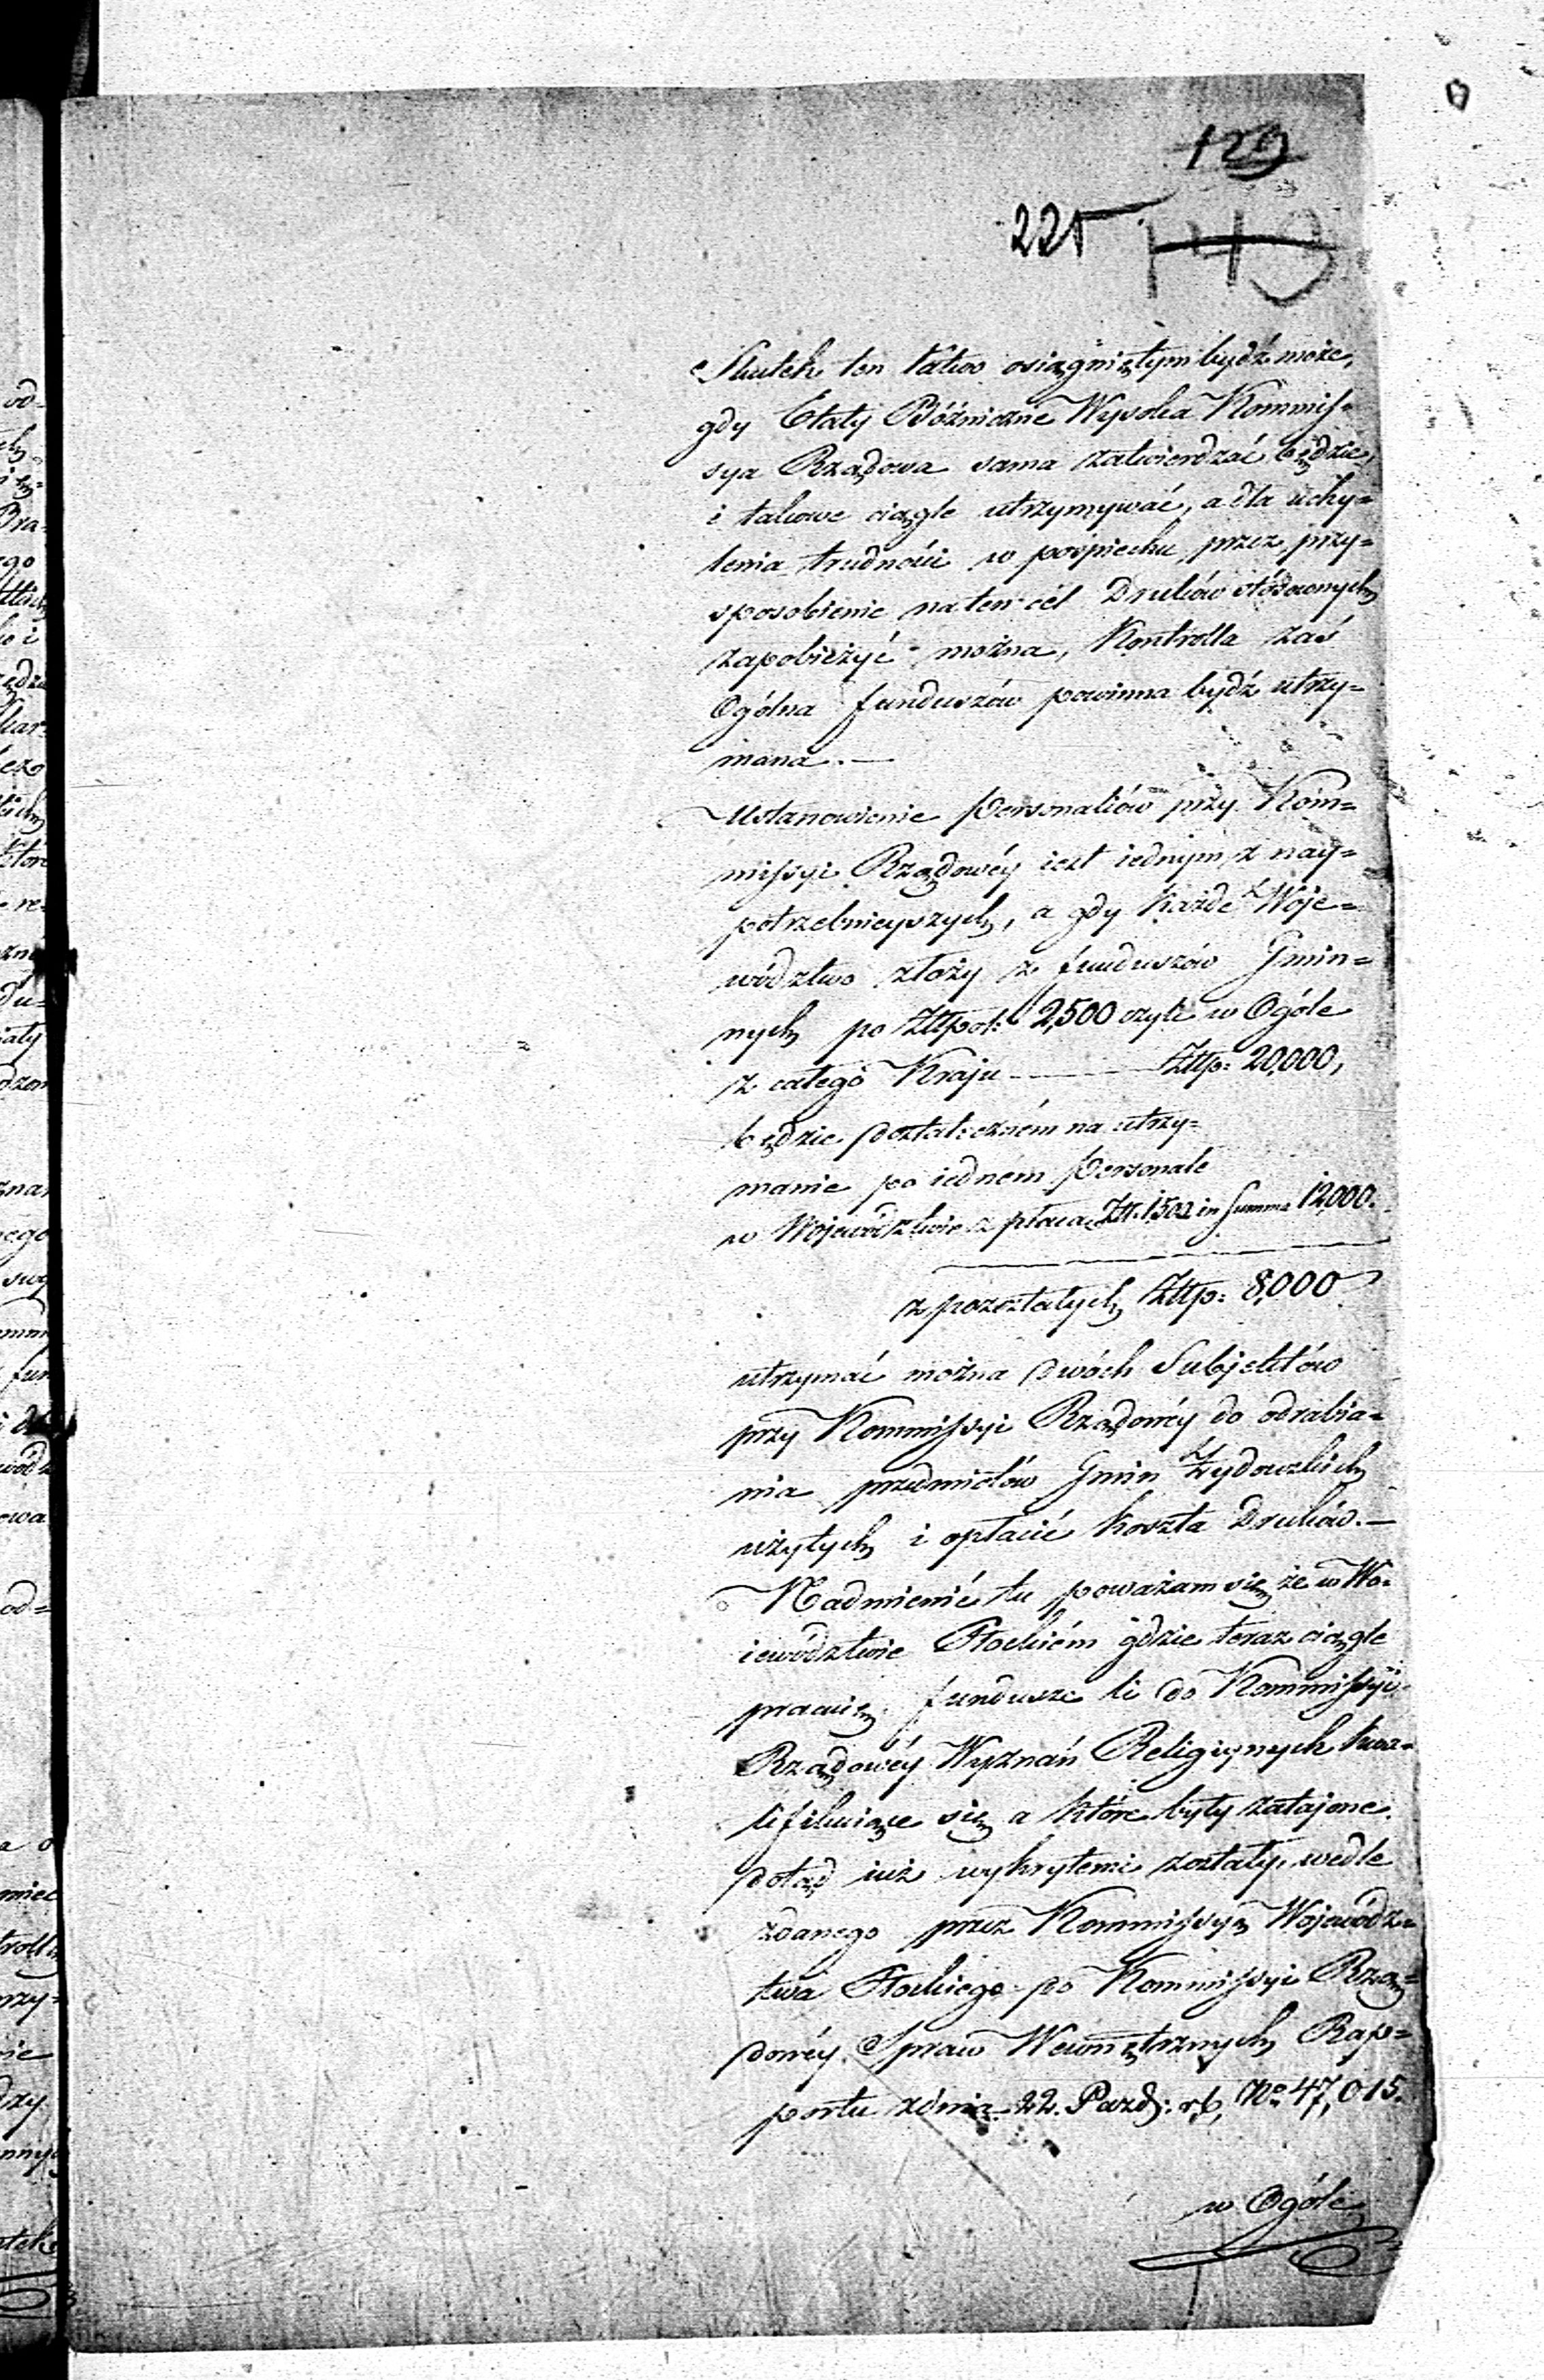 129
225 149
Skutek ten łatwo osiągniętym bydź może,
gdy Etaty Bóżnicze Wysoka Kommis=
sya Rządowa sama zatwierdzać będzie,
i takowe ciągle utrzymywać, a dla uchy=
lenia trudności w pośpiechu, przez przy=
sposobienie na ten cél Druków stósownych
zapobieżyć można, Kontrolla zaś
Ogólna funduszów powinna bydź utrzy=
mana. —
Ustanowienie Personaliów przy Kom=
missyi Rządowéy iest iednym z nay=
potrzebnieyszych, a gdy każde Woje=
wództwo złoży z funduszów Gmin=
nych po Złtpol: 2,500 czyli w Ogóle
z całego Kraju — Złtp: 20,000,
będzie dostateczném na utrzy=
manie po iedném Personale
w Województwie z płacą Złt. 1500 in Summa 12,000.
z pozostałych Złtp: 8,000
utrzymać można dwóch Subjektów
przy Kommissyi Rządowéy do odrabia=
nia przedmiotów Gmin Żydowskich
użytych i opłacić koszta Druków. —
Nadmienić tu poważam się że w Wo=
iewództwie Płockiém gdzie teraz ciągle
pracuię fundusze li do Kommissyi
Rządowéy Wyznań Religiynych kwa=
lifikuiące się a które były zatajone
dotąd iuż wykrytemi zostały, wedle
zdanego przez Kommissyę Wojewódz=
twa Płockiego po Kommissyi Rzą=
dowéy Spraw Wewnętrznych Rap=
portu z dnia 22. Pazdz: r.b. No. 47,015.
w Ogóle